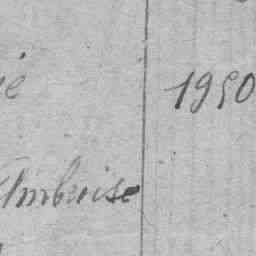 ié 1950
Ambroise